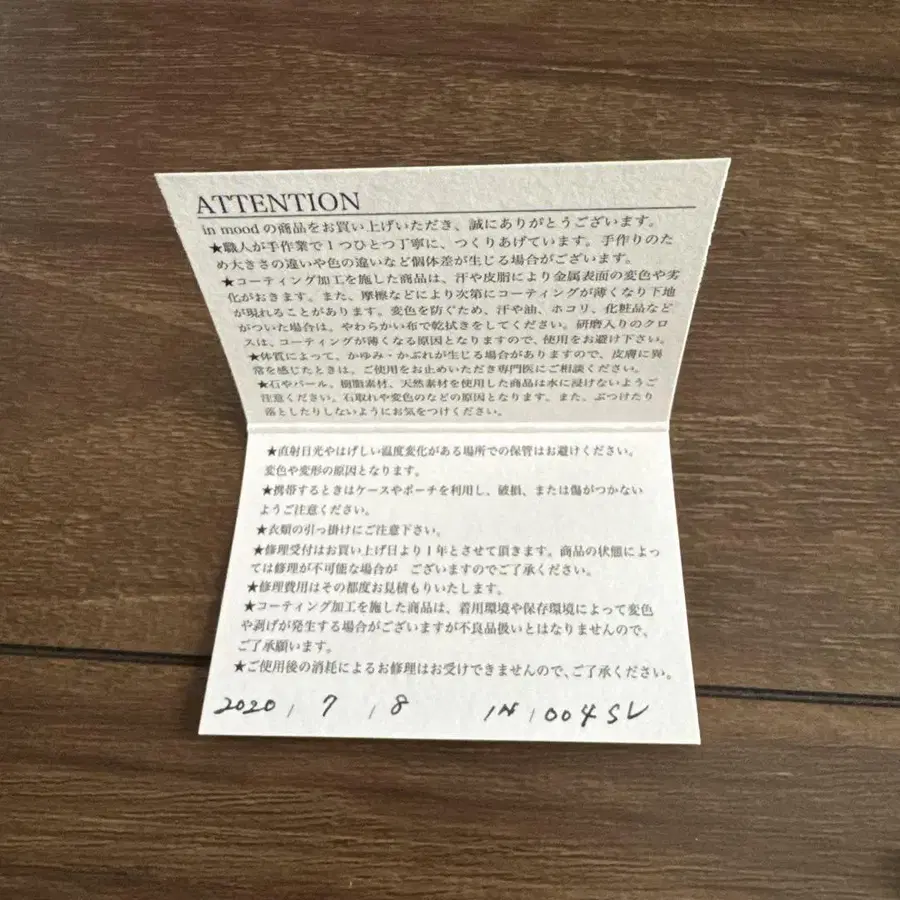 ATTENTION
in mood の商品をお買い上げいただき、誠にありがとうございます。
★職人が手作業で1つひとつ丁寧に、つくりあげています。手作りのた
め大きさの違いや色の違いなど個体差が生じる場合がございます。
★コーティング加工を施した商品は、汗や皮脂により金属表面の変色や劣
化がおきます。また、摩擦などにより次第にコーティングが薄くなり下地
が現れることがあります。変色を防ぐため、汗や油、ホコリ、化粧品など
がついた場合は、やわらかい布で乾拭きをしてください。研磨入りのクロ
スは、コーティングが薄くなる原因となりますので、使用をお避け下さい。
★体質によって、かゆみ・かぶれが生じる場合がありますので、皮膚に異
常を感じたときは、ご使用をお止めいただき専門医にご相談ください。
★石やパール、樹脂素材、天然素材を使用した商品は水に浸けないようご
注意ください。石取れや変色のなどの原因となります。また、ぶつけたり
落としたりしないようにお気をつけください。
★直射日光やはげしい温度変化がある場所での保管はお避けください。
変色や変形の原因となります。
★携帯するときはケースやポーチを利用し、破損、または傷がつかない
ようご注意ください。
★衣類の引っ掛けにご注意下さい。
★修理受付はお買い上げ日より1年とさせて頂きます。商品の状態によっ
ては修理が不可能な場合が ございますのでご了承ください。
★修理費用はその都度お見積もりいたします。
★コーティング加工を施した商品は、着用環境や保存環境によって変色
や剥げが発生する場合がございますが不良品扱いとはなりませんので、
ご了承願います。
★ご使用後の消耗によるお修理はお受けできませんので、ご了承ください。
2020 , 7 , 8 IN , 004SV